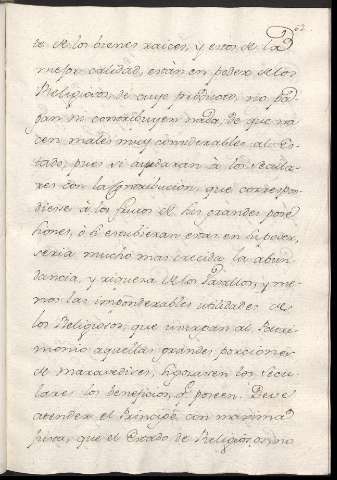 te de los bienes raices, y estos de la
mejor calidad, estàn en poder de los
Religiosos, de cuyo producto, no pa-
gan ni contribuyen nada, de que na-
cen males muy considerables al Es-
tado, pues si ayudaran à los Secula-
res con la Contribucion, que correspon-
diese à los frutos de sus grandes pose-
siones, ò si estubieran estas en su poder,
seria mucho mas crecida la abun-
dancia, y riqueza de los Vasallos, y me-
nos las imponderables utilidades de
los Religiosos, que
aquellas grandes porciones
de maravedises, los Secu-
lares los beneficios, q.e poseen. Deve
atender el Principe con maxima
fixa, que el Estado de Religiosos, no